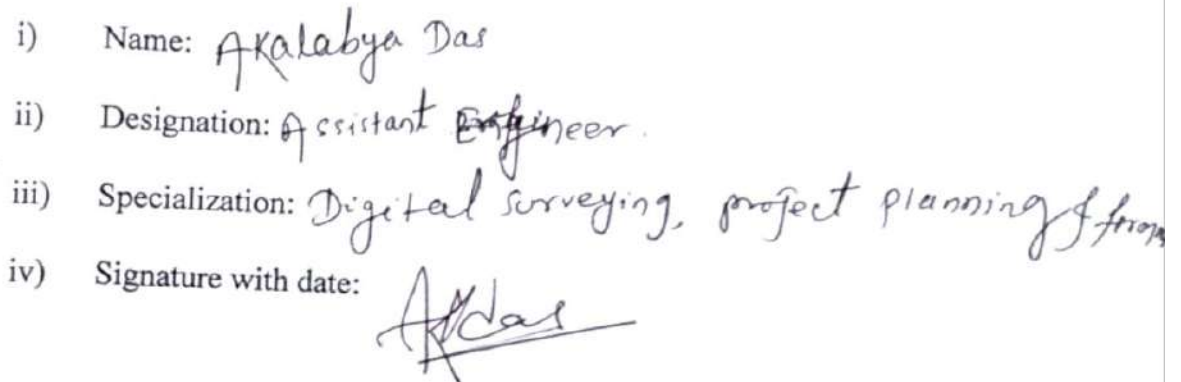 i) Name: Akalabya Das
ii) Designation: Assistant Engineer.
iii) Specialization: Digital surveying, project planning &
iv) Signature with date:
AKdas